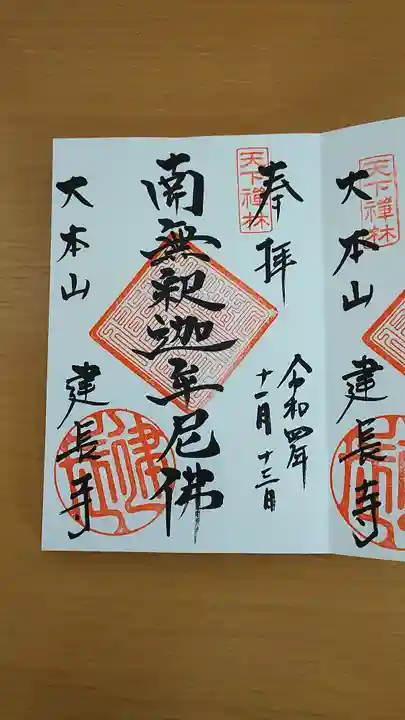 天下禅林
大本山 建長寺
天下禅林
奉拝
令和四年
十一月十三日
南無釈迦牟尼佛
大本山 建長寺